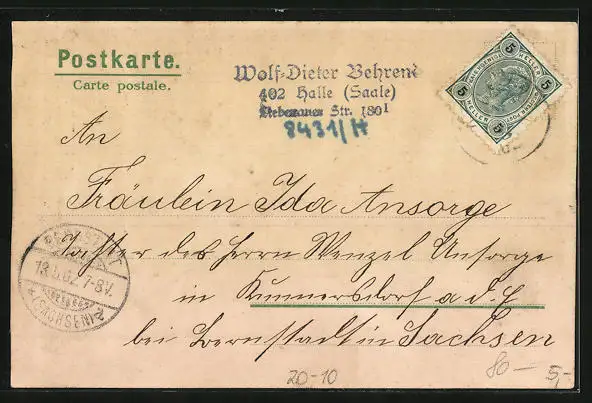 Postkarte.
Carte postale.
Wolf-Dieter Behrend
402 Halle (Saale)
Str. 180 I
8431/H
5 HELLER 5
An
Fräulein Ida Ansorge
Tochter des Herrn Wenzel Ansorge
in Kunnersdorf a. d. E
bei Bernstadt in Sachsen
BERNSTADT
7-8V.
(SACHSEN)
80 —
5,-
20-10